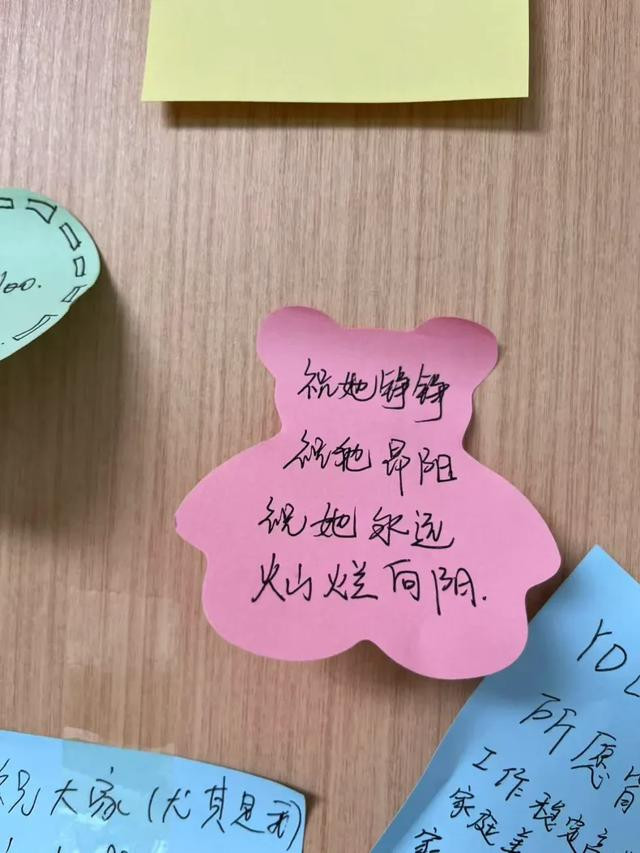 100.
祝她铮铮
祝她昂阳
祝她永远
灿烂向阳.
所愿皆
工作稳定
家庭美
祝大家(尤其是我)